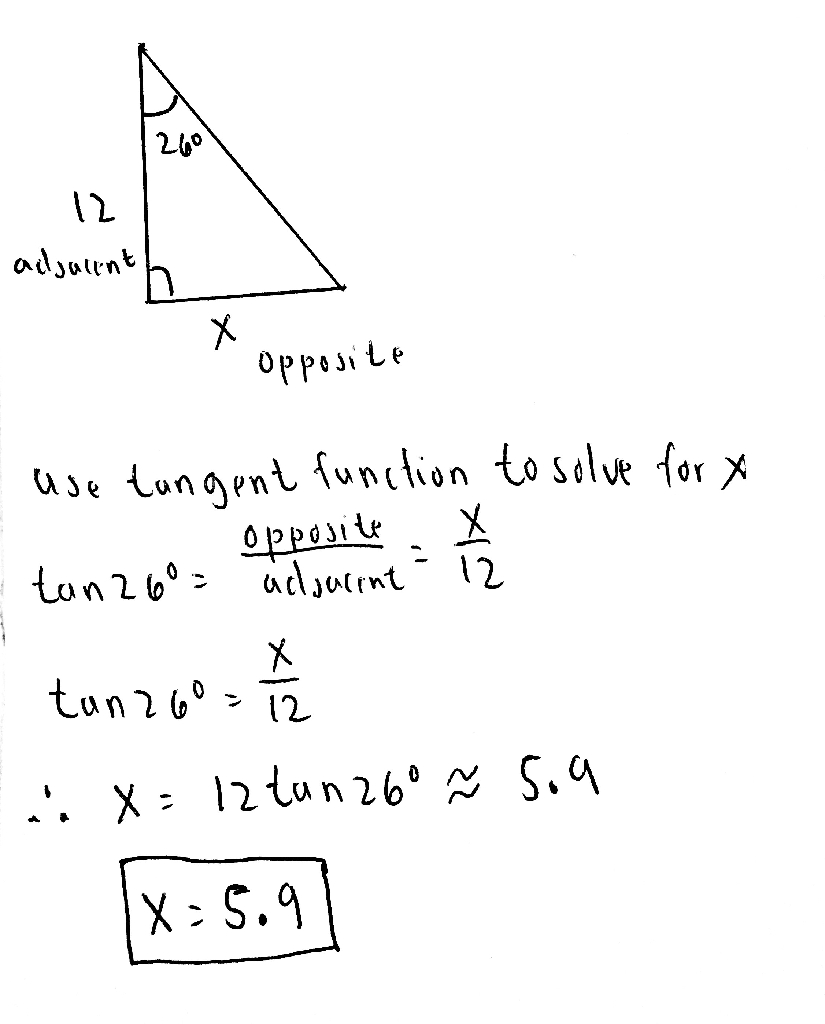 26°
12
adjacent
x
opposite
use tangent function to solve for x
tan 26° = opposite/adjacent = x/12
tan 26° = x/12
∴ x = 12 tan 26° ≈ 5.9
x = 5.9